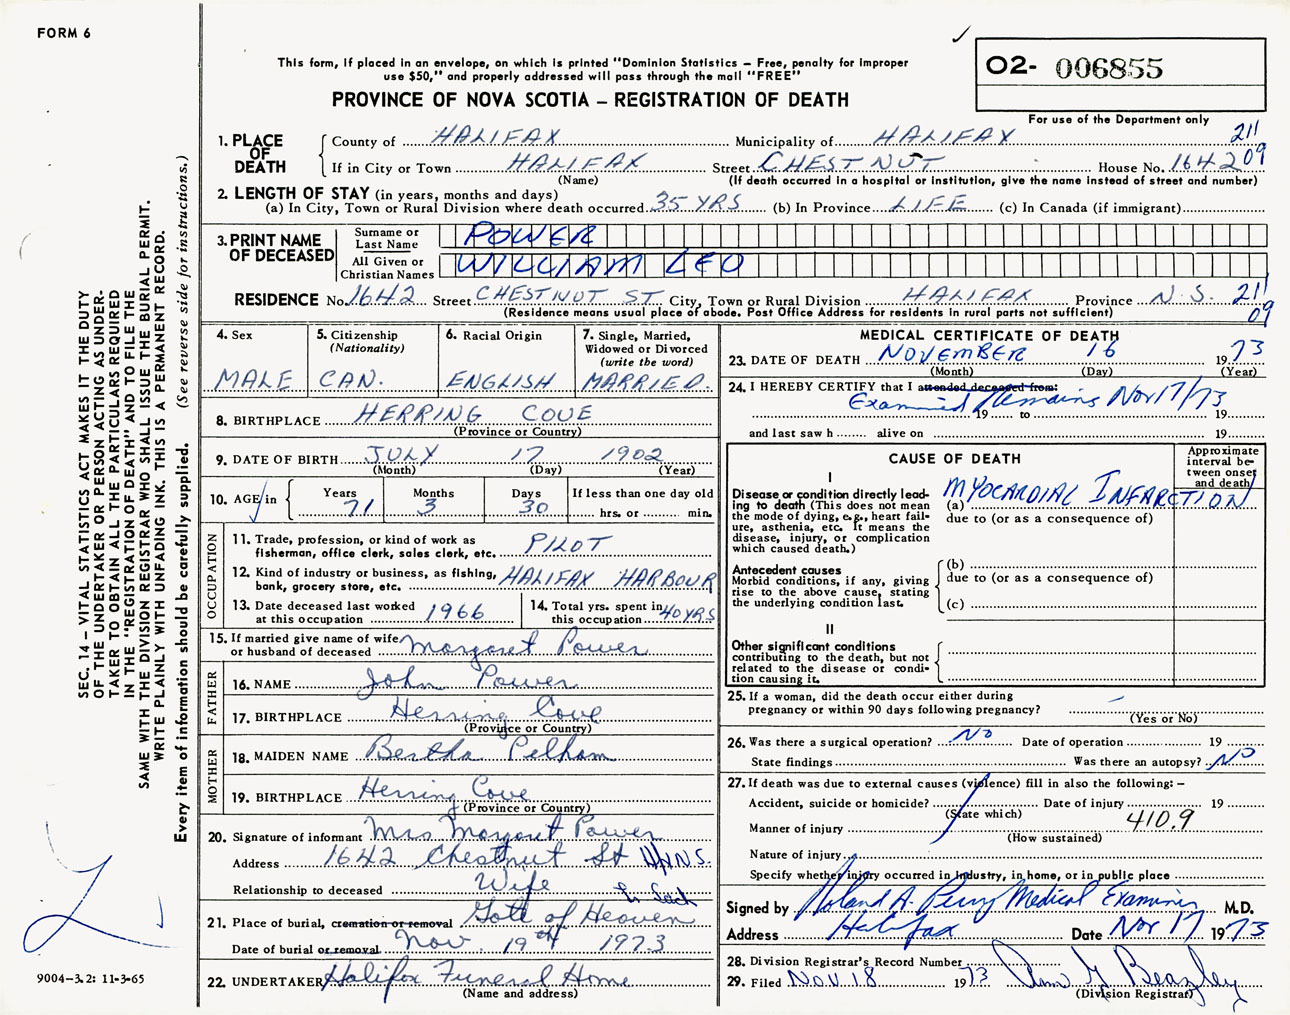 FORM 6
SEC. 14 – VITAL STATISTICS ACT MAKES IT THE DUTY
OF THE UNDERTAKER OR PERSON ACTING AS UNDER-
TAKER TO OBTAIN ALL THE PARTICULARS REQUIRED
IN THE "REGISTRATION OF DEATH" AND TO FILE THE
SAME WITH THE DIVISION REGISTRAR WHO SHALL ISSUE THE BURIAL PERMIT.
WRITE PLAINLY WITH UNFADING INK. THIS IS A PERMANENT RECORD.
Every item of information should be carefully supplied. (See reverse side for instructions.)
9004–3.2: 11-3-65
This form, if placed in an envelope, on which is printed "Dominion Statistics – Free, penalty for improper
use $50," and properly addressed will pass through the mail "FREE"
PROVINCE OF NOVA SCOTIA – REGISTRATION OF DEATH
02- 006855
For use of the Department only
1. PLACE OF DEATH County of HALIFAX Municipality of HALIFAX 211
If in City or Town HALIFAX Street CHESTNUT House No. 1642 09
(Name) (If death occurred in a hospital or institution, give the name instead of street and number)
2. LENGTH OF STAY (in years, months and days)
(a) In City, Town or Rural Division where death occurred 35 YRS (b) In Province LIFE (c) In Canada (if immigrant)
3. PRINT NAME OF DECEASED
Surname or Last Name POWER
All Given or Christian Names WILLIAM LEO
RESIDENCE No. 1642 Street CHESTNUT ST City, Town or Rural Division HALIFAX Province N.S. 211
(Residence means usual place of abode. Post Office Address for residents in rural parts not sufficient) 09
4. Sex MALE
5. Citizenship (Nationality) CAN.
6. Racial Origin ENGLISH
7. Single, Married, Widowed or Divorced (write the word) MARRIED.
8. BIRTHPLACE HERRING COVE
(Province or Country)
9. DATE OF BIRTH JULY 17 1902
(Month) (Day) (Year)
10. AGE in Years 71 Months 3 Days 30 If less than one day old
hrs. or min.
OCCUPATION
11. Trade, profession, or kind of work as
fisherman, office clerk, sales clerk, etc. PILOT
12. Kind of industry or business, as fishing,
bank, grocery store, etc. HALIFAX HARBOUR
13. Date deceased last worked
at this occupation 1966
14. Total yrs. spent in
this occupation 40 YRS
15. If married give name of wife
or husband of deceased Margaret Power
FATHER
16. NAME John Power
17. BIRTHPLACE Herring Cove
(Province or Country)
MOTHER
18. MAIDEN NAME Bertha Pelham
19. BIRTHPLACE Herring Cove
(Province or Country)
20. Signature of informant Mrs Margaret Power
Address 1642 Chestnut St Hfx N.S.
Relationship to deceased Wife
21. Place of burial, cremation or removal Gate of Heaven
Date of burial or removal Nov. 19th 1973
22. UNDERTAKER Halifax Funeral Home
(Name and address)
MEDICAL CERTIFICATE OF DEATH
23. DATE OF DEATH NOVEMBER 16 1973
(Month) (Day) (Year)
24. I HEREBY CERTIFY that I attended deceased from:
Examined Remains Nov 17/73
19 to 19
and last saw h alive on 19
CAUSE OF DEATH
Approximate interval between onset and death
I
Disease or condition directly lead-
ing to death (This does not mean
the mode of dying, e.g., heart fail-
ure, asthenia, etc. It means the
disease, injury, or complication
which caused death.)
(a) MYOCARDIAL INFARCTION
due to (or as a consequence of)
Antecedent causes
Morbid conditions, if any, giving
rise to the above cause, stating
the underlying condition last.
(b)
due to (or as a consequence of)
(c)
II
Other significant conditions
contributing to the death, but not
related to the disease or condi-
tion causing it.
25. If a woman, did the death occur either during
pregnancy or within 90 days following pregnancy? –
(Yes or No)
26. Was there a surgical operation? No Date of operation 19
State findings Was there an autopsy? No
27. If death was due to external causes (violence) fill in also the following: –
Accident, suicide or homicide? Date of injury 19
(State which)
Manner of injury 410.9
(How sustained)
Nature of injury
Specify whether injury occurred in Industry, in home, or in public place
Signed by Roland A. Perry Medical Examiner M.D.
Address Halifax Date Nov 17 1973
28. Division Registrar's Record Number
29. Filed NOV 18 1973 Ann G Beazley
(Division Registrar)